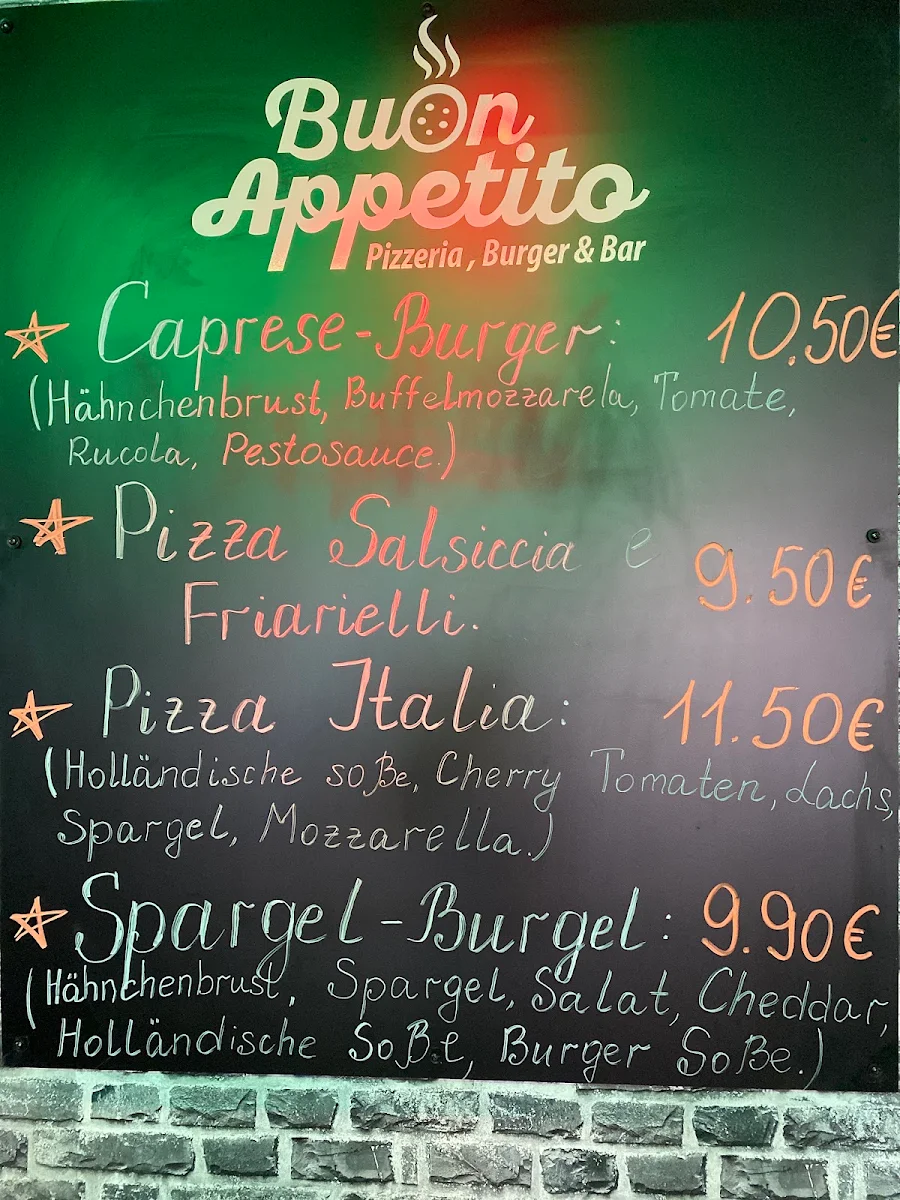 Buon
Appetito
Pizzeria, Burger & Bar
Caprese-Burger: 10.50€
(Hähnchenbrust, Buffelmozzarela, Tomate,
Rucola, Pestosauce.)
Pizza Salsiccia e
Friarielli. 9.50€
Pizza Italia: 11.50€
(Holländische soße, Cherry Tomaten, Lachs,
Spargel, Mozzarella.)
Spargel-Burgel: 9.90€
(Hähnchenbrust, Spargel, Salat, Cheddar,
Holländische Soße, Burger Soße.)